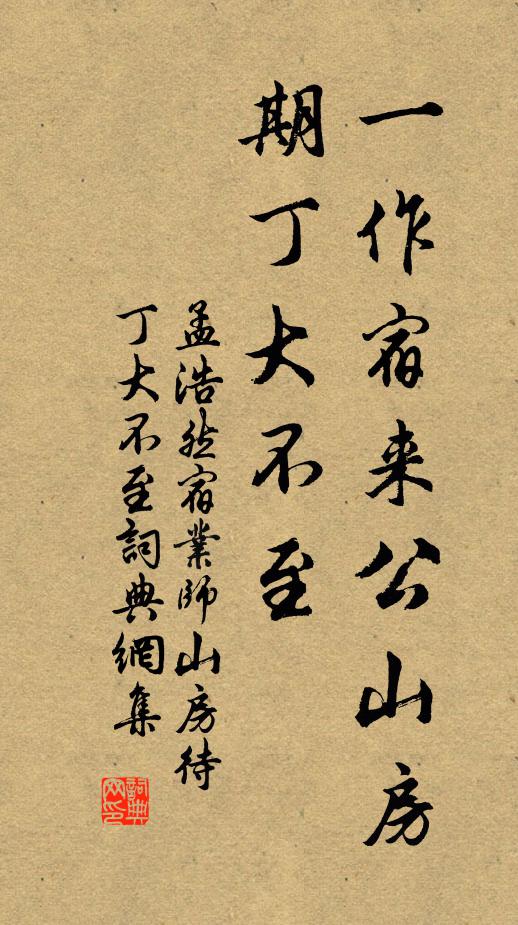 一作宿来公山房
期丁大不至
孟浩然宿業師山房待
丁大不至詞典網集
詞典网印